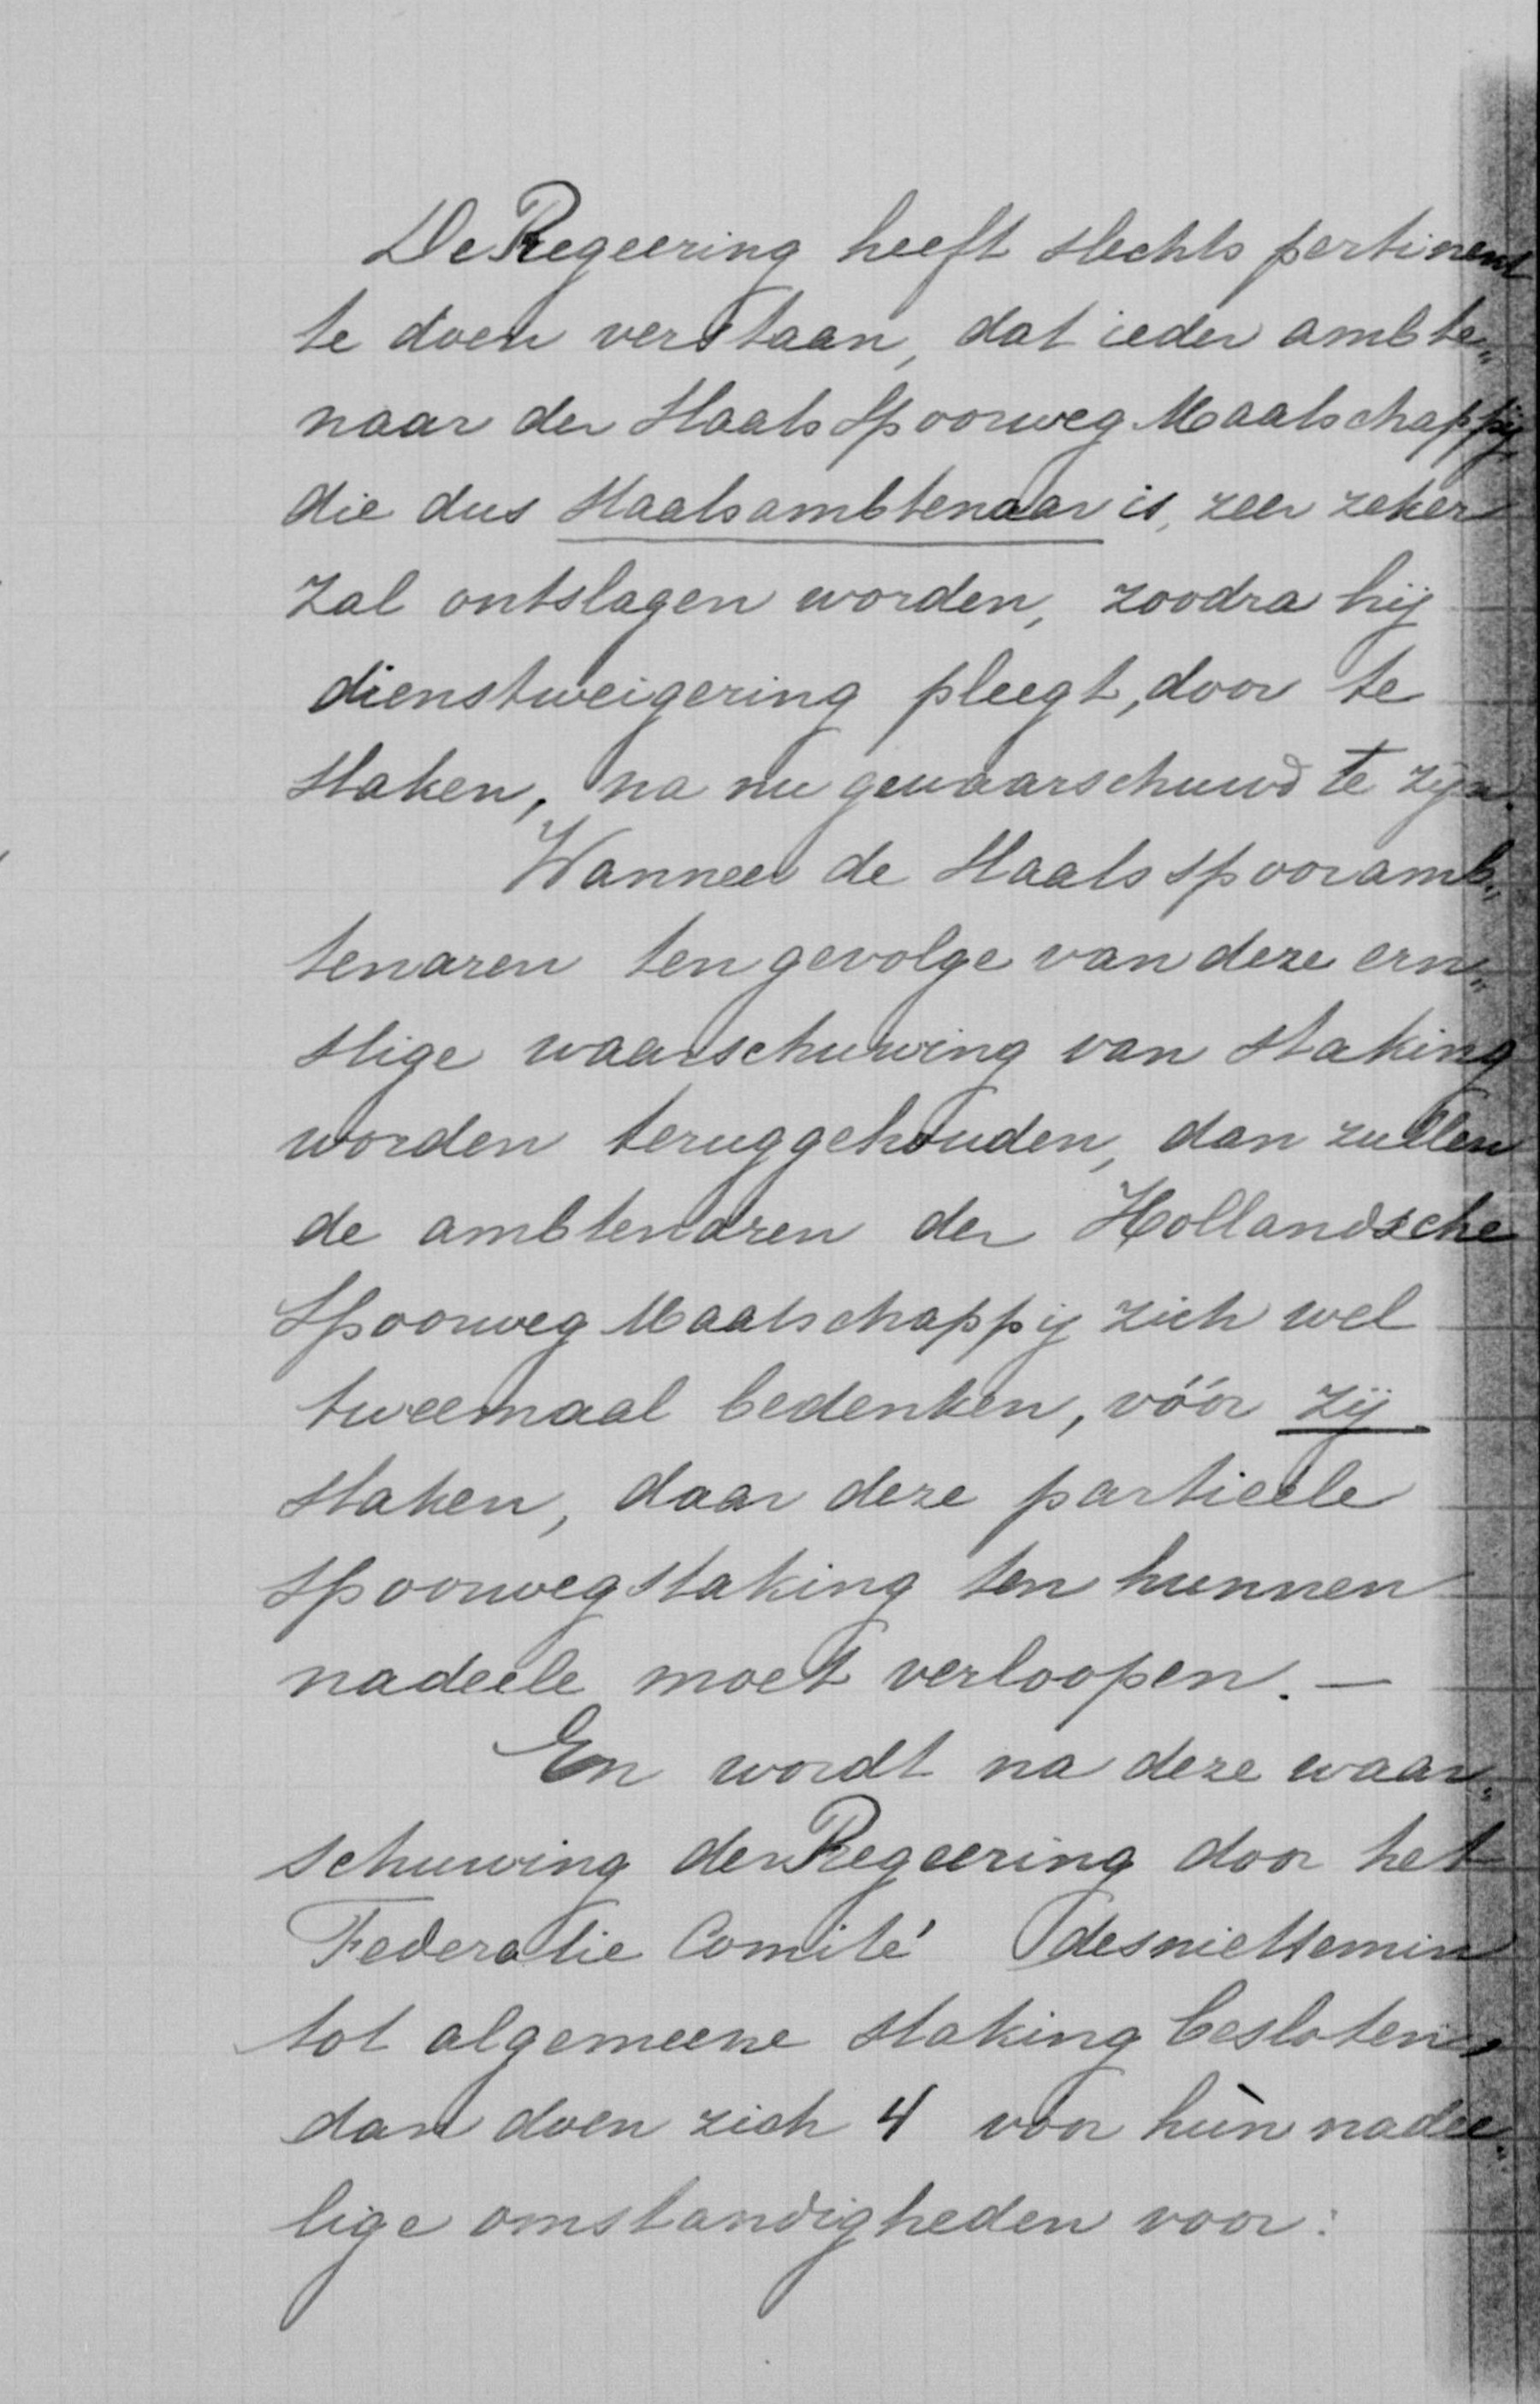 De Regeering heeft slechts pertinent
te doen verstaan, dat ieder ambte„
naar der Staats Spoorweg Maatschappij,
die dus Staatsambtenaar is, zeer zeker
zal ontslagen worden, zoodra hij
dienstweigering pleegt, door te
staken, na nu gewaarschuwd te zijn.
Wanneer de Staatsspooramb„
tenaren ten gevolge van deze ern„
stige waarschuwing van staking
worden teruggehouden, dan zullen
de ambtenaren der Hollandsche
Spoorweg Maatschappij zich wel
tweemaal bedenken, vóór zij
staken, daar deze partieele
spoorwegstaking ten hunnen
nadeele moet verloopen. —
En wordt na deze waar„
schuwing der Regeering door het
Federatie Comité desniettemin
tot algemeene staking besloten,
dan doen zich 4 voor hùn nadee„
lige omstandigheden voor: